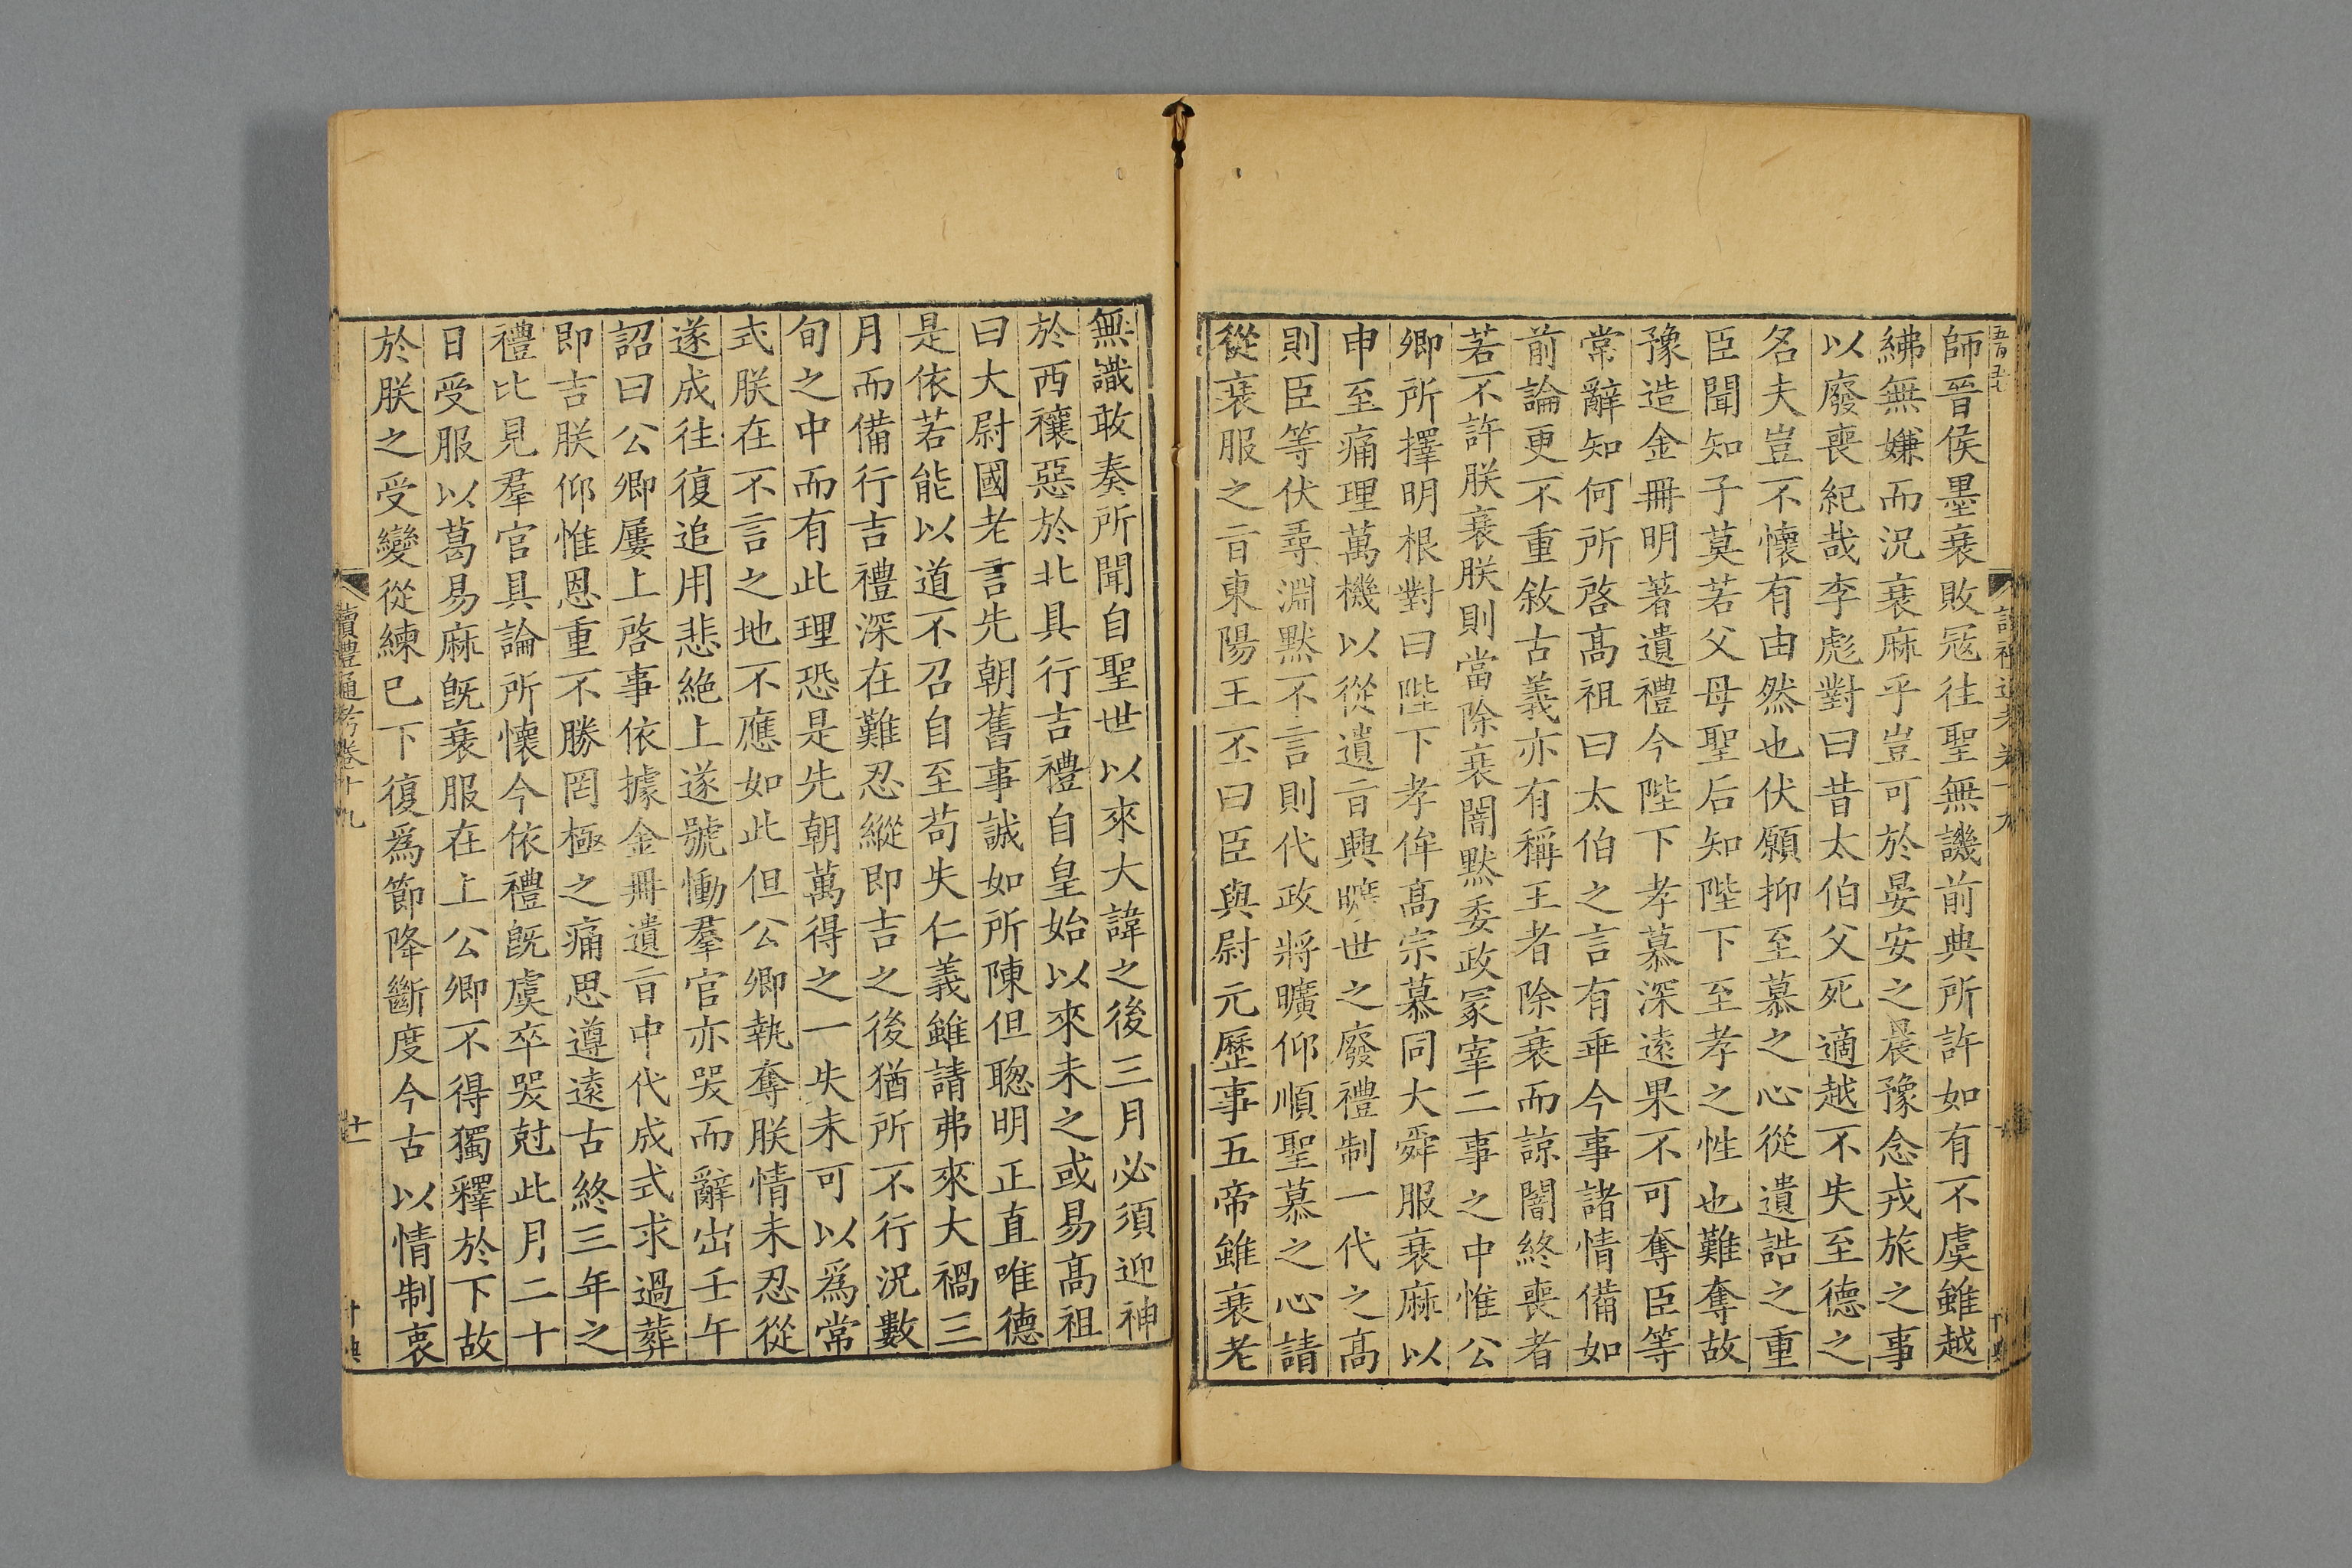 師晉侯墨衰敗冦徃聖無譏前典所許如有不虞雖越
紼無嫌而況衰麻乎豈可於晏安之晨豫念戎旅之事
以廢喪紀哉李彪對曰昔太伯父死適越不失至德之
名夫豈不懷有由然也伏願抑至慕之心從遺誥之重
臣聞知子莫若父母聖后知陛下至孝之性也難奪故
豫造金冊明著遺禮今陛下孝慕深遠果不可奪臣等
常辭知何所啓高祖曰太伯之言有乖今事諸情備如
前論更不重敘古義亦有稱王者除衰而諒闇終喪者
若不許朕衰朕則當除衰闇默委政冡宰二事之中惟公
卿所擇明根對曰陛下孝侔高宗慕同大舜服衰麻以
申至痛理萬機以從遺㫖興曠世之廢禮制一代之高
則臣等伏尋淵默不言則代政將曠仰順聖慕之心請
從衰服之㫖東陽王丕曰臣與尉元歷事五帝雖衰老
無識敢奏所聞自聖世以來大諱之後三月必須迎神
於西禳惡於北具行吉禮自皇始以來未之或易高祖
曰大尉國老言先朝舊事誠如所陳但聰明正直唯德
是依若能以道不召自至苟失仁義雖請弗來大禍三
月而備行吉禮深在難忍縱即吉之後猶所不行況數
旬之中而有此理恐是先朝萬得之一失未可以爲常
式朕在不言之地不應如此但公卿執奪朕情未忍從
遂成徃復追用悲絶上遂號慟羣官亦哭而辭出壬午
詔曰公卿屢上啓事依據金冊遺㫖中代成式求過葬
即吉朕仰惟恩重不勝罔極之痛思遵遠古終三年之
禮比見羣官具論所懷今依禮旣虞卒哭尅此月二十
日受服以葛易麻旣衰服在上公卿不得獨釋於下故
於朕之受變從練已下復爲節降斷度今古以情制衷
讀禮通考卷十九
十一